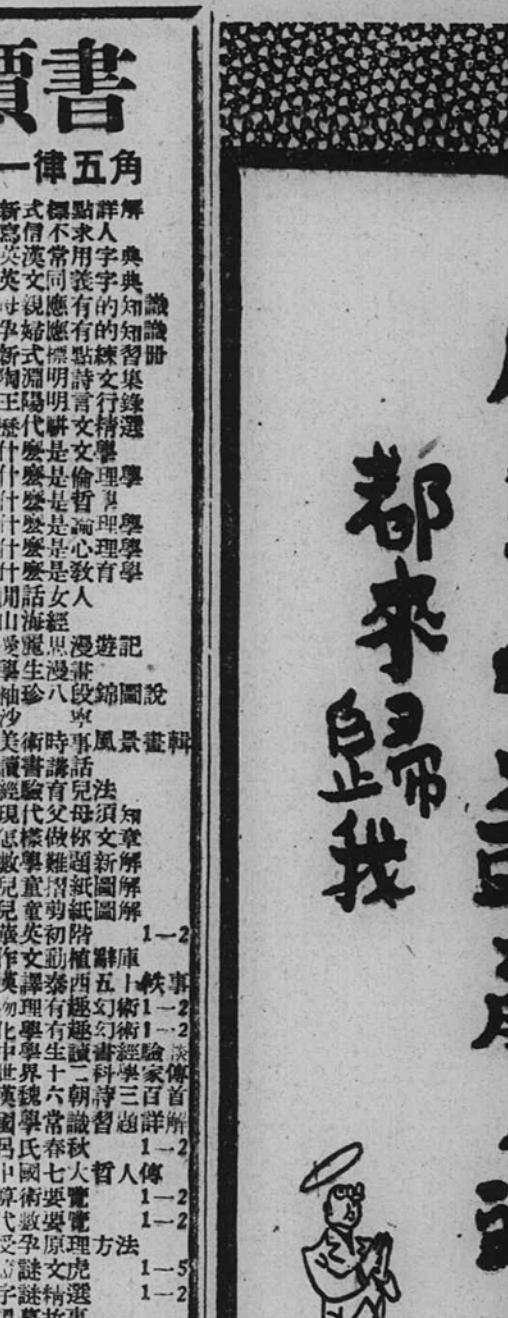 書
一律五角
新式標點詳解
寫信不求人
英漢常用字典
英文同義字典
母親應有的知識
孕婦應有的知識
新式標點練習冊
陶淵明詩文集
王陽明言行錄
歷代駢文精選
什麼是文學
什麼是倫理學
什麼是哲學
什麼是論理學
什麼是心理學
什麼是教育學
閒話女人
山海經
愛麗思漫遊記
學生漫畫
袖珍八段錦圖說
沙寧
美術時事風景畫輯
讀書講話
經驗育兒法
現代父母須知
怎樣做你文章
數學難題新解
兒童摺紙圖解
兒童剪紙圖解
華英初階 1—2
作文動植辭庫
英譯泰西五十軼事
物理有趣幻術 1—2
化學有趣幻術 1—2
中學生讀書經驗談
世界十二科學家傳
漢魏六朝詩三百首
國學常識習題詳解
呂氏春秋 1—2
中國七大哲人傳
算術要覽 1—2
代數要覽 1—2
受孕原理方法
謎文虎 1—5
字謎精選 1—2
都來歸我